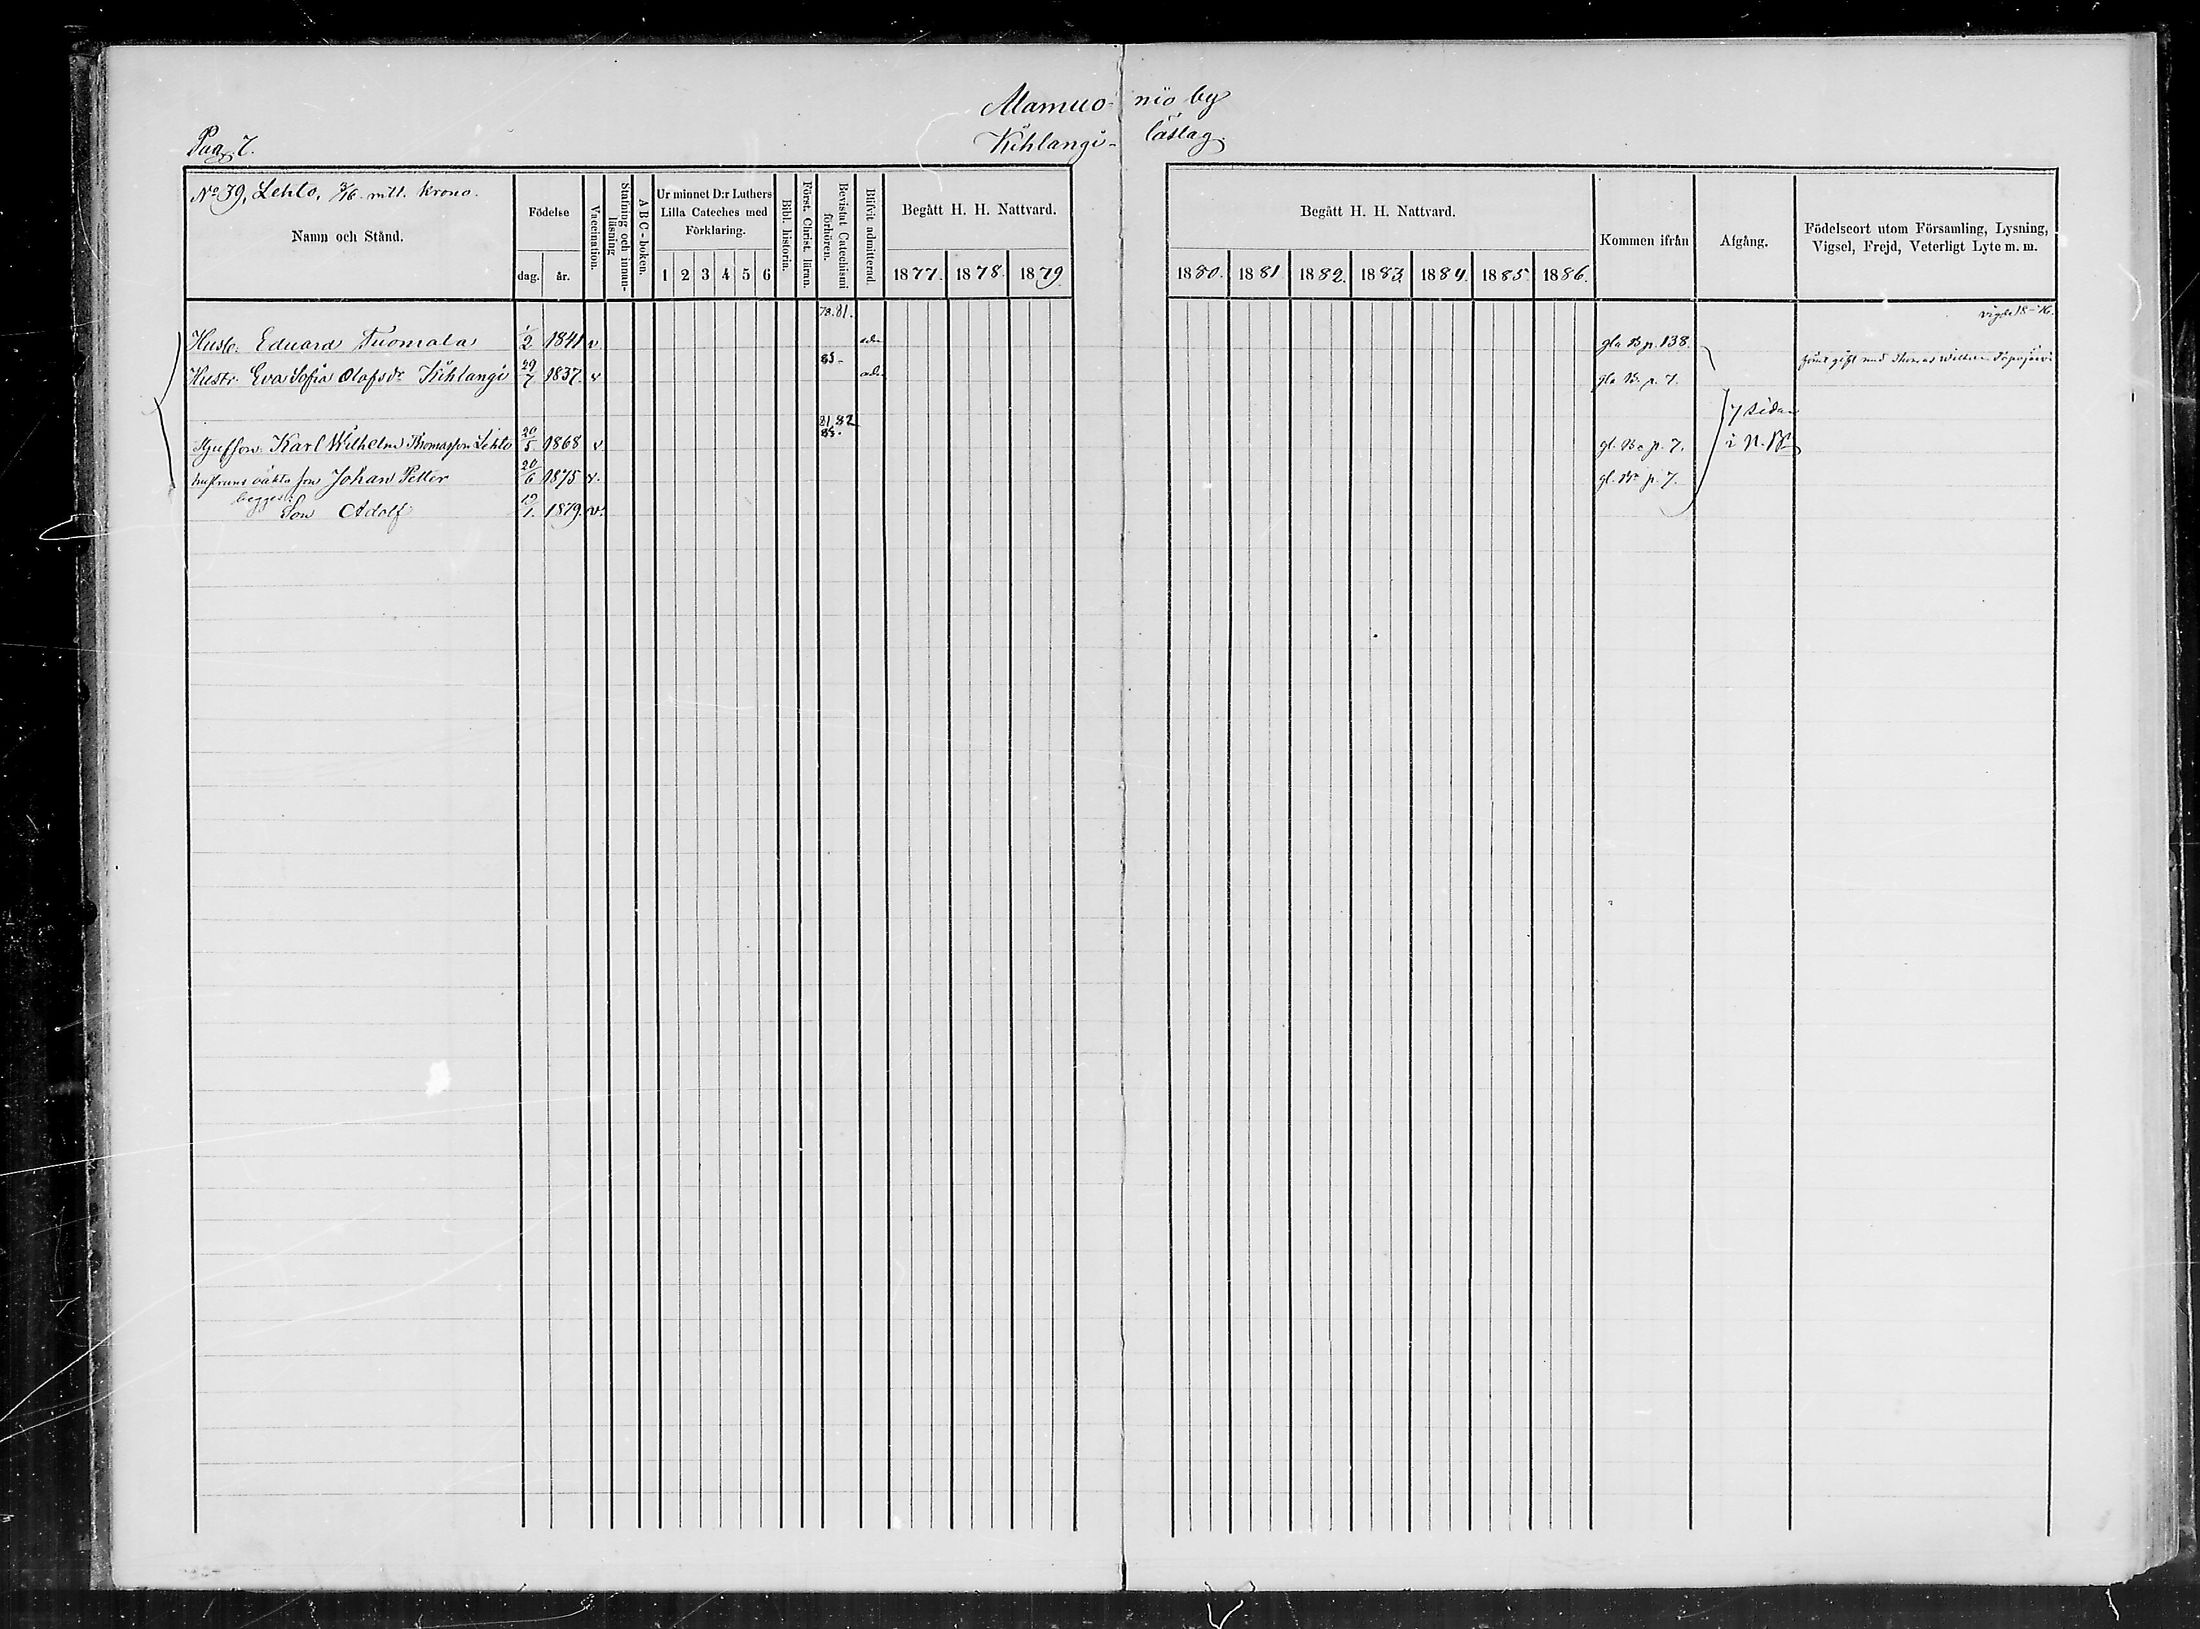 Alamuo- nio by
Pag. 7. Kihlangi- läslag.
No 39, Lehto, 3/16 mtl. krono.
Namn och Stånd.
Födelse
dag. år.
Vaccination.
Stafning och innan-läsning
A B C-boken.
Ur minnet D:r Luthers Lilla Cateches med Förklaring.
1 2 3 4 5 6
Bibl. historia.
Först. Christ. läran.
Bevistat Catechismi förhören.
Blifvit admitterad.
Begått H. H. Nattvard.
1877. 1878. 1879.
Begått H. H. Nattvard.
1880. 1881. 1882. 1883. 1884. 1885. 1886.
Kommen ifrån
Afgång.
Födelseort utom Församling, Lysning, Vigsel, Frejd, Veterligt Lyte m. m.
78.81. vigde 18-76.
Husb. Eduard Tuomala 1/2 1841 v. adm gla Bn p. 138.
Hustr. Eva Sofia Olafsdr Kihlangi 29/7 1837. v 85- adm. gla Bn p. 7. förut gift med Thomas Wilhelm
81,82 7 sidan
Styfson Karl Wilhelm Thomasson Lehto 20/5. 1868 v. 85. gl. Bn p. 7. i N. B.
hustruns oäkta son Johan Petter 20/6 1875 v. gl. Bn p. 7.
begges:
Son Adolf 19/1. 1879. v.